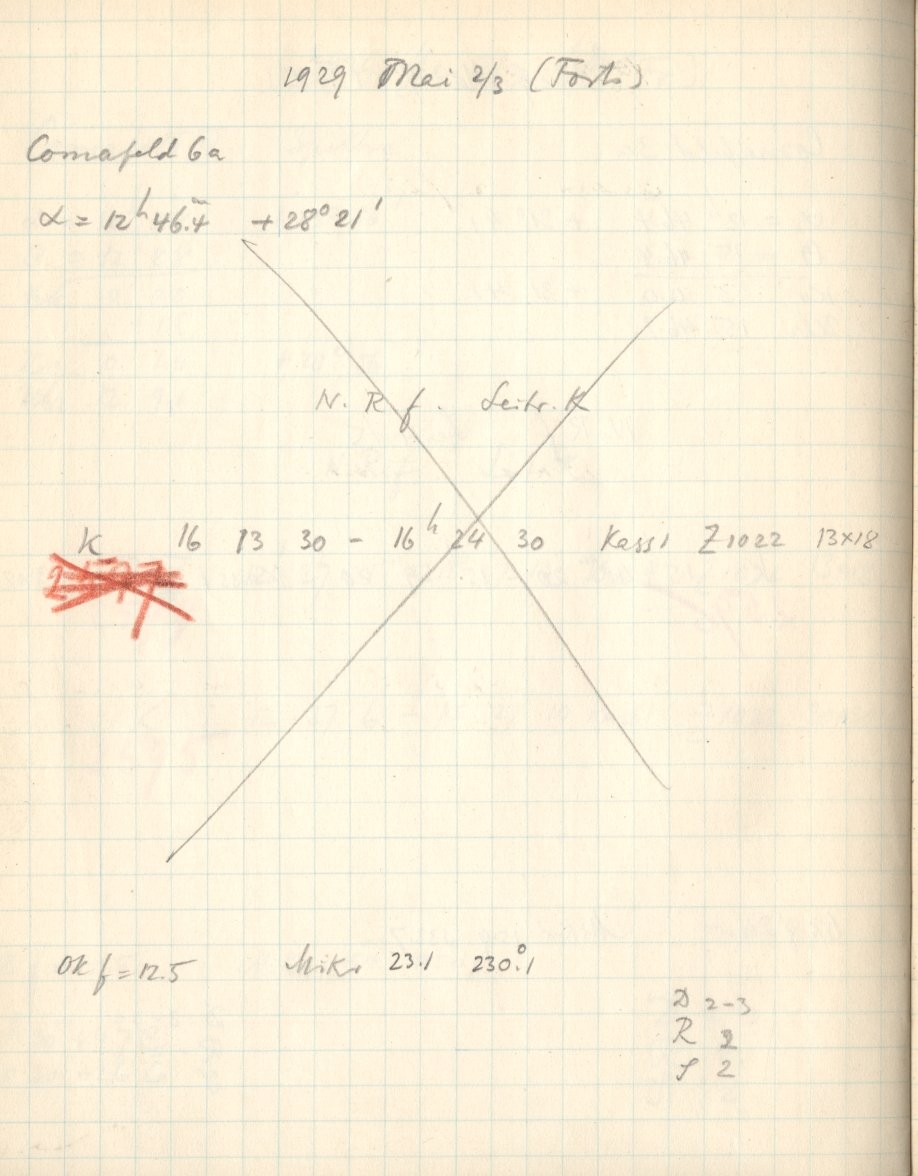 1929 Mai 2/3 (Forts)
Comafeld 6a
α = 12ʰ 46.ᵐ4 + 28° 21'
N. R f. Leitr. K
K 16 13 30 - 16ʰ 24 30 Kass 1 Z 1022 13×18
OK f = 12.5 Mikr 23.1 230.°1
D 2-3
R 2
S 2